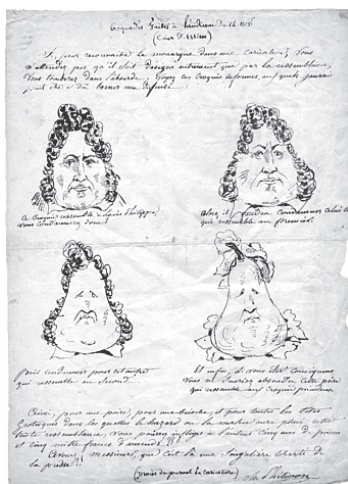 Croquades faites à l'audience du 14 nov.
(Cour d'Assises)
Si, pour reconnaître le monarque dans une caricature, vous
n'attendez pas qu'il soit désigné autrement que par la ressemblance,
vous tomberez dans l'absurde. Voyez ces croquis informes, auxquels j'aurais
peut être dû borner ma défense :
Ce croquis ressemble à Louis Philippe,
vous condamnerez donc ?
Alors il faudra condamner celui-ci
qui ressemble au premier.
Puis condamner pour cet autre
qui ressemble au second.
Et enfin, si vous êtes conséquens,
vous ne sauriez absoudre cette poire
qui ressemble aux croquis précédens.
Ainsi, pour une poire, pour une brioche, et pour toutes les têtes
grotesques dans lesquelles le hazard ou la malice aura placé cette
triste ressemblance, vous pourrez infliger à l'auteur cinq ans de prison
et cinq mille francs d'amende ??
Avouez, messieurs, que c'est là une singulière liberté de
la presse !!
Ch. Philipon